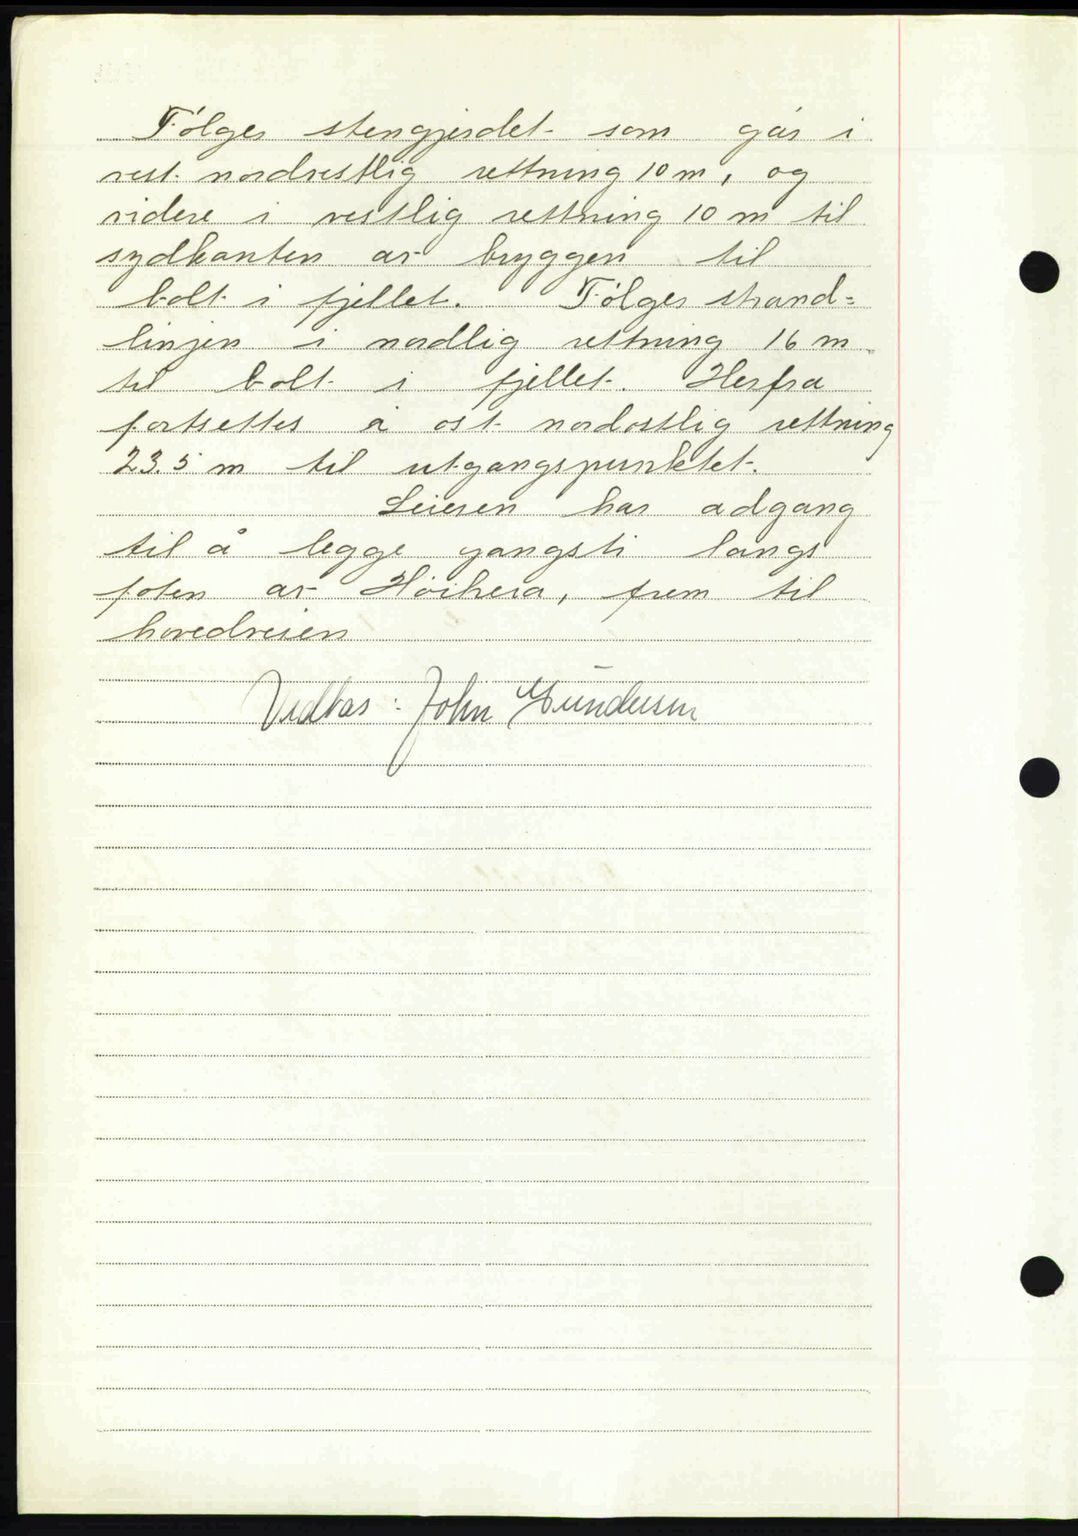 Følges stengjerdet som går i
vest nordvestlig rettning 10 m, og
videre i vestlig rettning 10 m til
sydkanten av bryggen til
bolt i fjellet. Følges strand=
linjen i nordlig rettning 16 m
til bolt i fjellet. Herfra
fortsettes i ost nordostlig rettning
23.5 m til utgangspunktet.
Leieren har adgang
til å legge gangsti langs
foten av Höiheia, frem til
hovedveien
John Gundersen